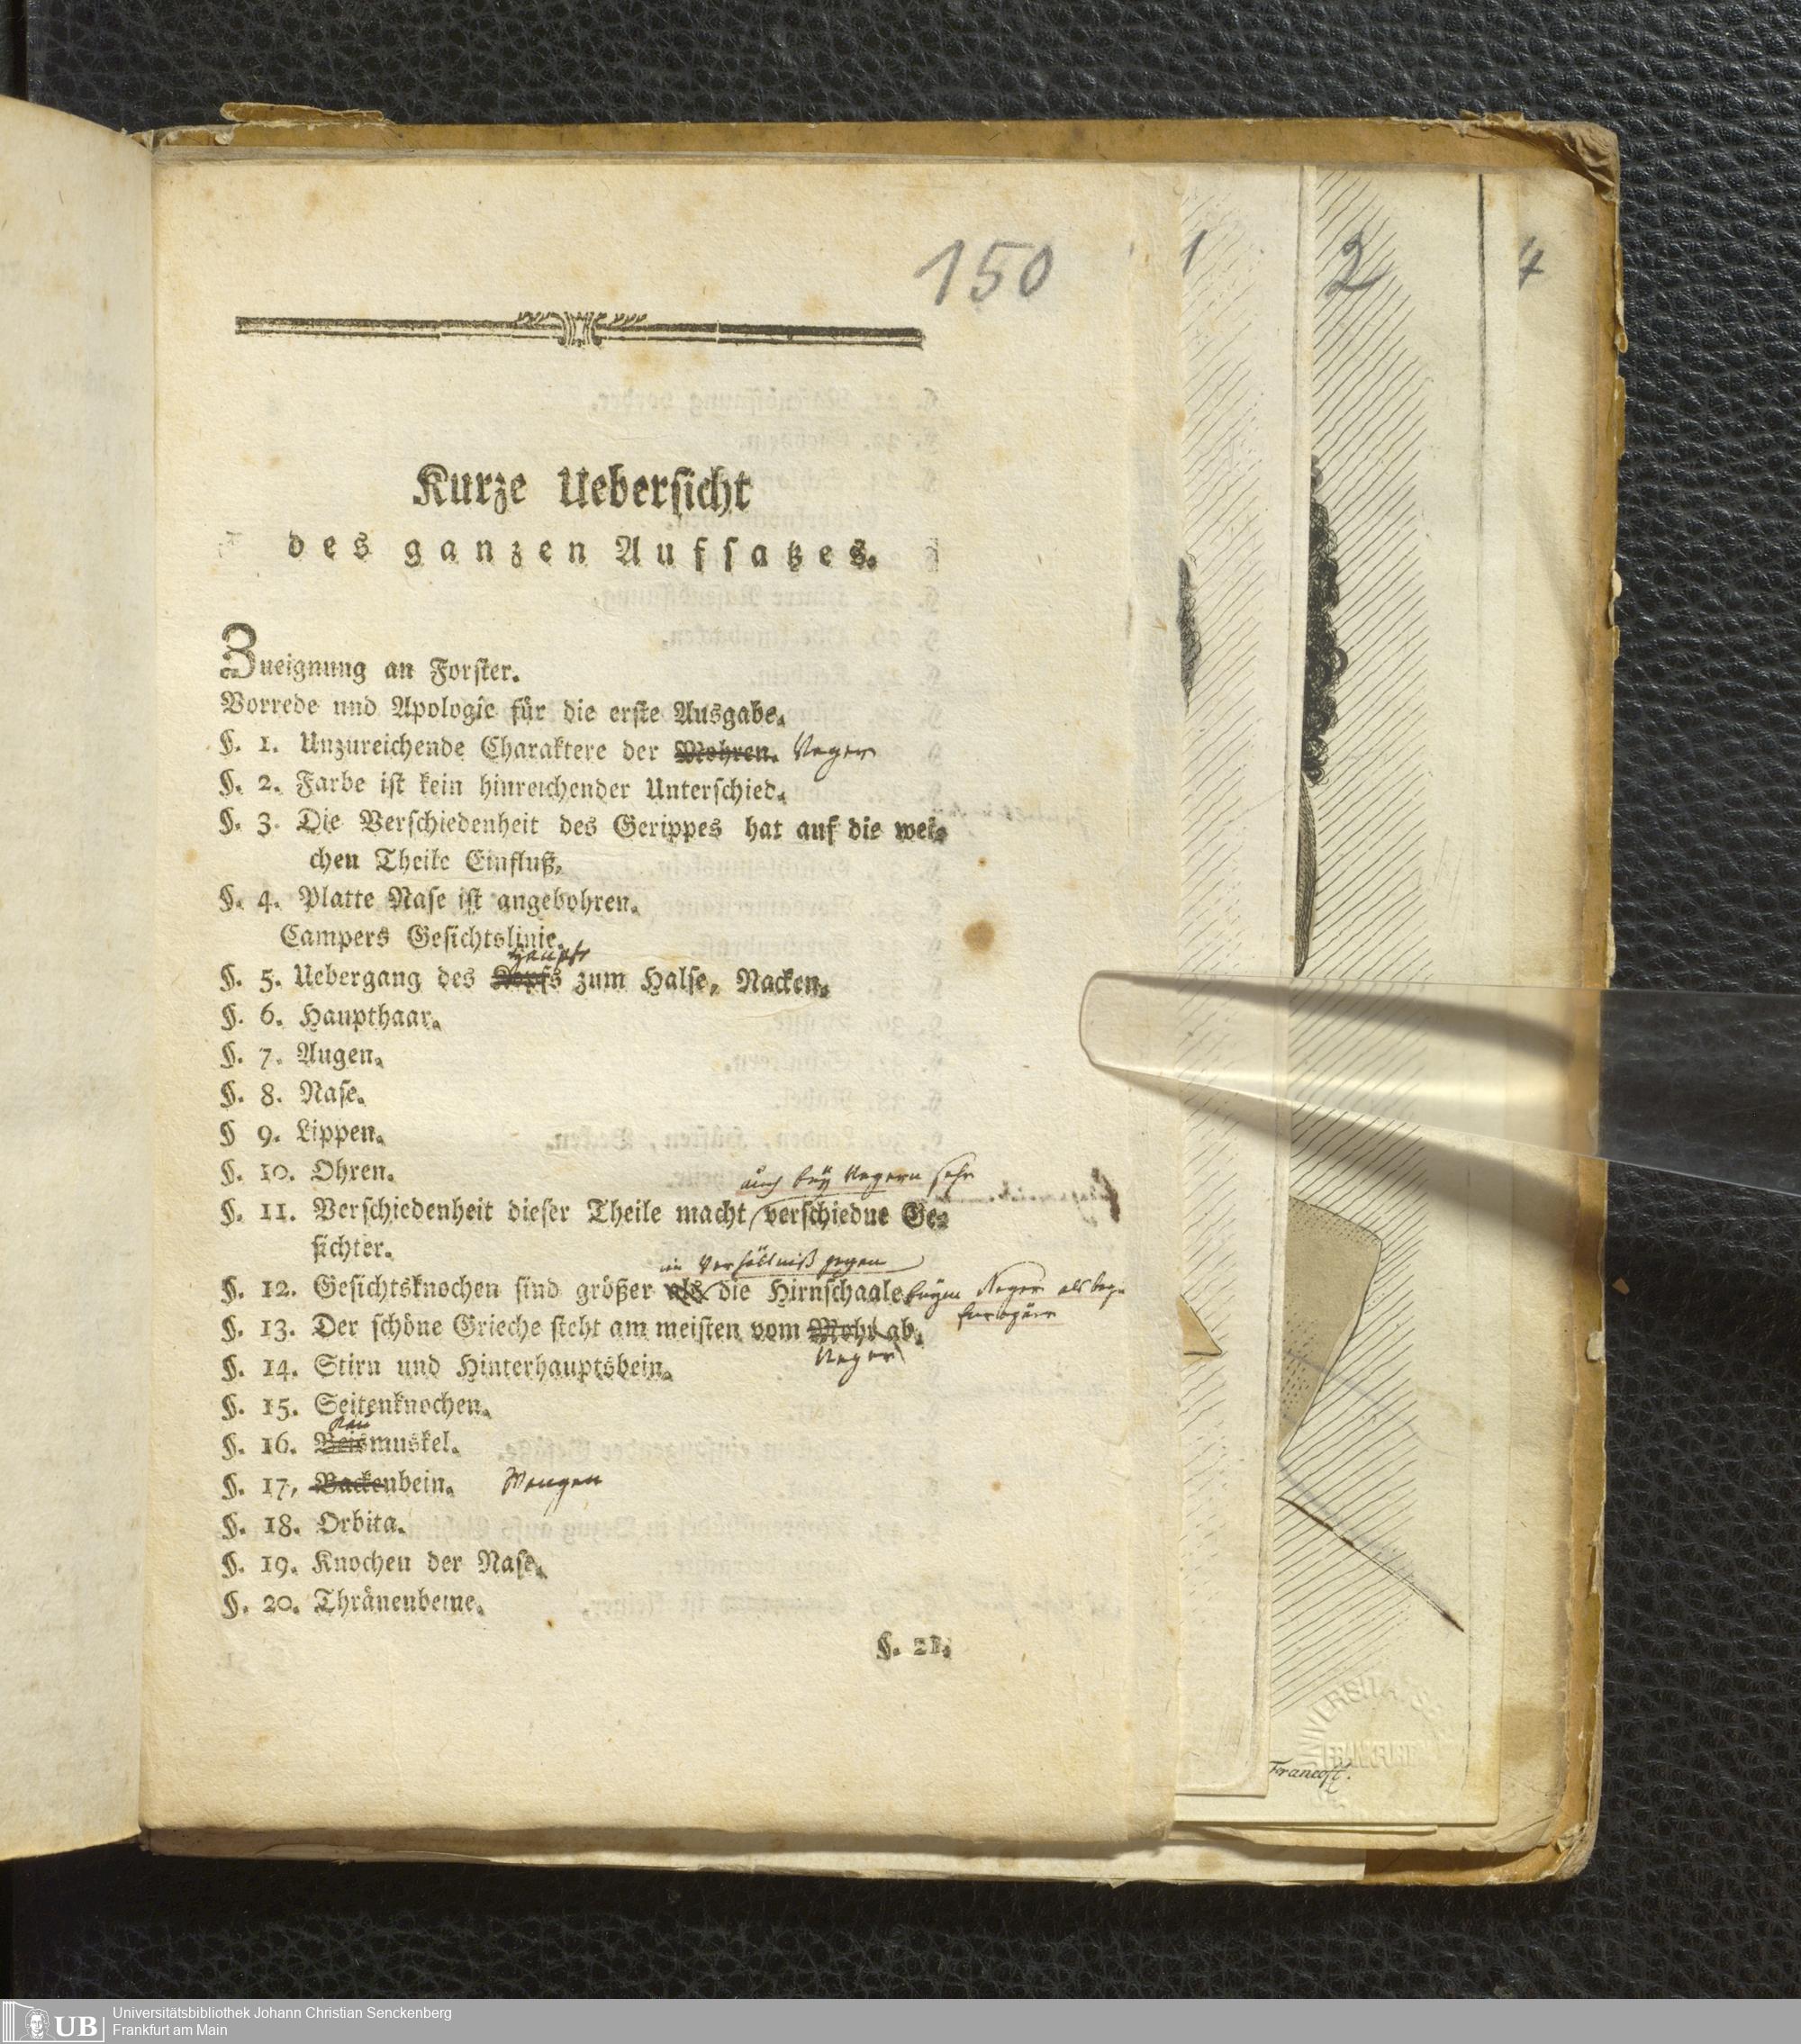 150
1
2
4
Kurze Ueberſicht
des ganzen Aufſatzes.
Zueignung an Forſter.
Vorrede und Apologie für die erſte Ausgabe.
§. 1. Unzureichende Charaktere der Mohren. Neger
§. 2. Farbe iſt kein hinreichender Unterſchied.
§. 3. Die Verſchiedenheit des Gerippes hat auf die wei-
chen Theile Einfluß.
§. 4. Platte Naſe iſt angebohren.
Campers Geſichtslinie.
Haupt
§. 5. Uebergang des Kopfs zum Halſe, Nacken.
§. 6. Haupthaar.
§. 7. Augen.
§. 8. Naſe.
§ 9. Lippen.
§. 10. Ohren.
auch bey Negern ſehr
§. 11. Verſchiedenheit dieſer Theile macht verſchiedne Ge-
ſichter.
im Verhältniß gegen
§. 12. Geſichtsknochen ſind größer als die Hirnſchaale beym Neger als beym
Europäer
§. 13. Der ſchöne Grieche ſteht am meiſten vom Mohr ab.
Neger
§. 14. Stirn und Hinterhauptsbein.
§. 15. Seitenknochen.
Kau
§. 16. Beismuskel.
§. 17, Backenbein. Wangen
§. 18. Orbita.
§. 19. Knochen der Naſe.
§. 20. Thränenbeine.
§. 21.
Francoft.
UNIVERSITÄTS
FRANKFURT
UB
Universitätsbibliothek Johann Christian Senckenberg
Frankfurt am Main